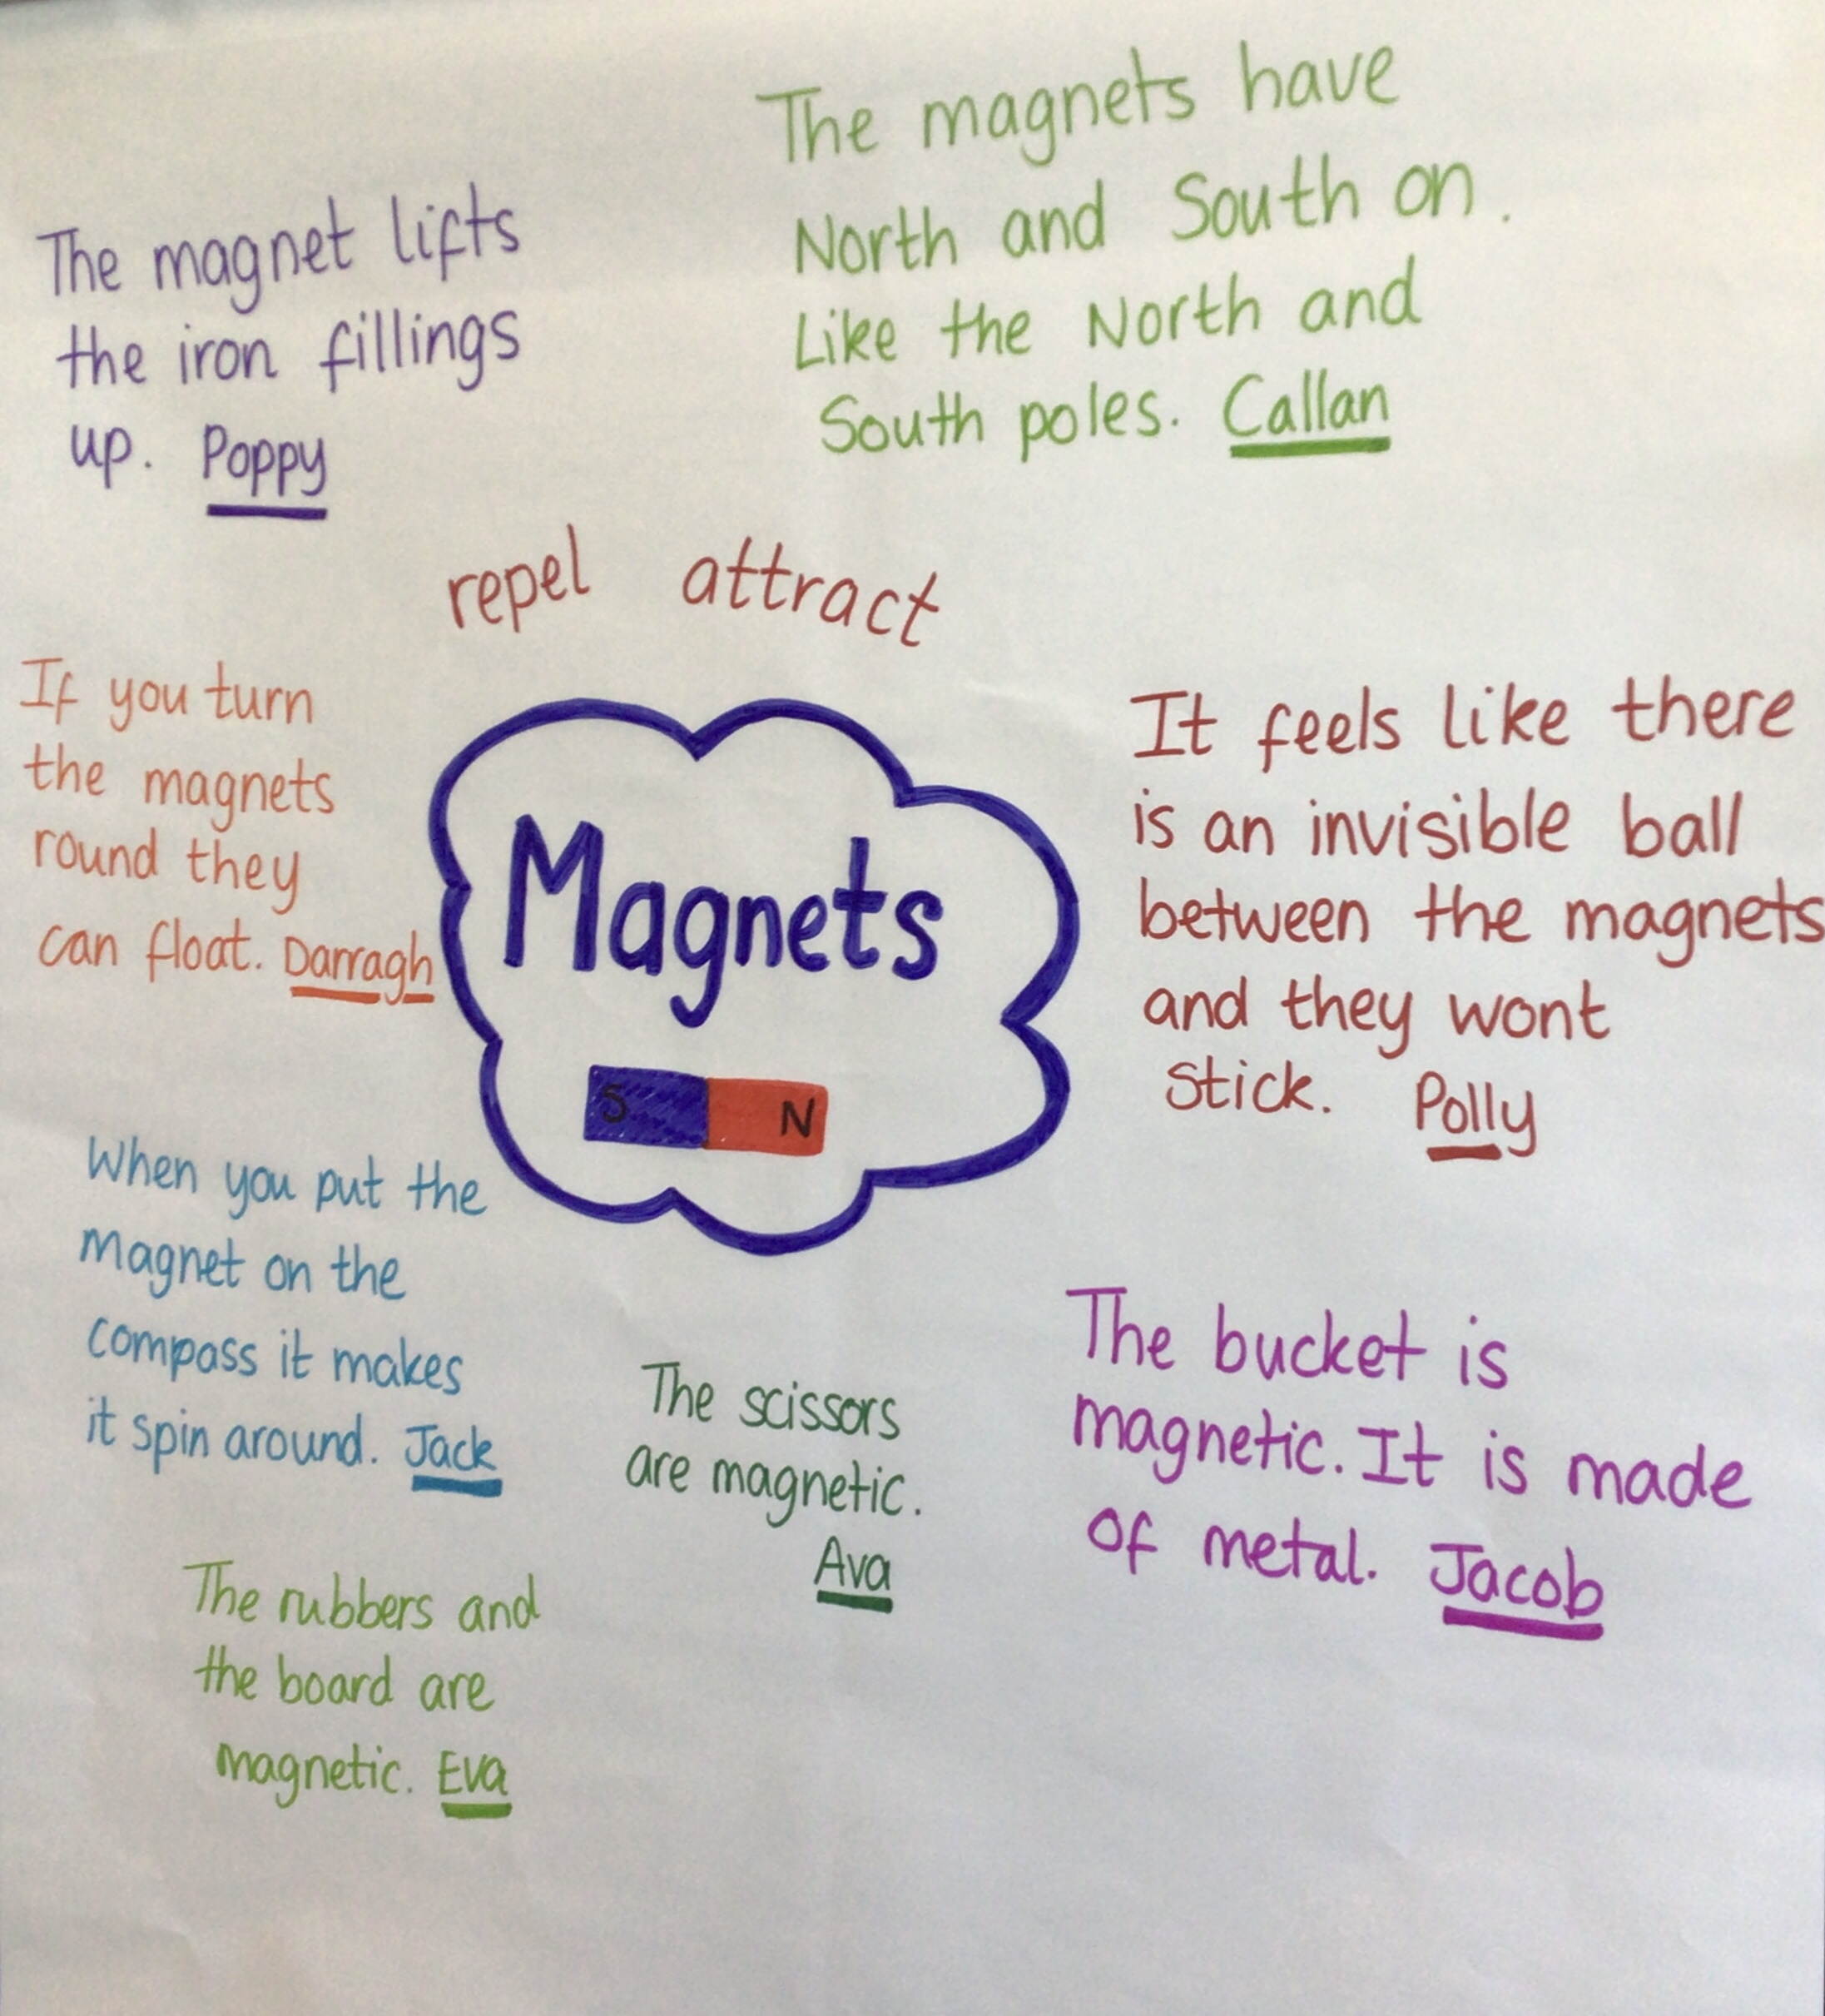 The magnets have
North and South on.
Like the North and
South poles. Callan
The magnet lifts
the iron fillings
up. Poppy
repel attract
If you turn
the magnets
round they
can float. Darragh
Magnets
S N
It feels like there
is an invisible ball
between the magnets
and they wont
stick. Polly
When you put the
magnet on the
compass it makes
it spin around. Jack
The scissors
are magnetic.
Ava
The bucket is
magnetic. It is made
of metal. Jacob
The rubbers and
the board are
magnetic. Eva